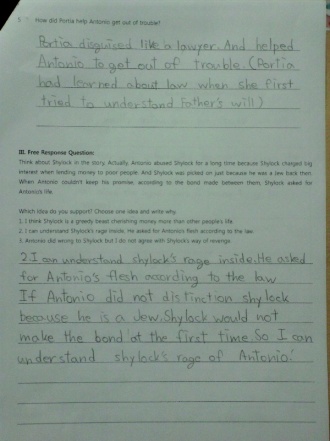 5. How did Portia help Antonio get out of trouble?
Portia disguised like a lawyer. And helped
Antonio to get out of trouble. (Portia
had learned about law when she first
tried to understand Father's will)
III. Free Response Question:
Think about Shylock in the story. Actually, Antonio abused Shylock for a long time because Shylock charged big
interest when lending money to poor people. And Shylock was picked on just because he was a Jew back then.
When Antonio couldn't keep his promise, according to the bond made between them, Shylock asked for
Antonio's life.
Which idea do you support? Choose one idea and write why.
1. I think Shylock is a greedy beast cherishing money more than other people's life.
2. I can understand Shylock's rage inside. He asked for Antonio's flesh according to the law.
3. Antonio did wrong to Shylock but I do not agree with Shylock's way of revenge.
2. I can understand shylock's rage inside. He asked
for Antonio's flesh according to the law
If Antonio did not distinction shylock
because he is a Jew. Shylock would not
make the bond at the first time. So I can
understand shylock's rage of Antonio.